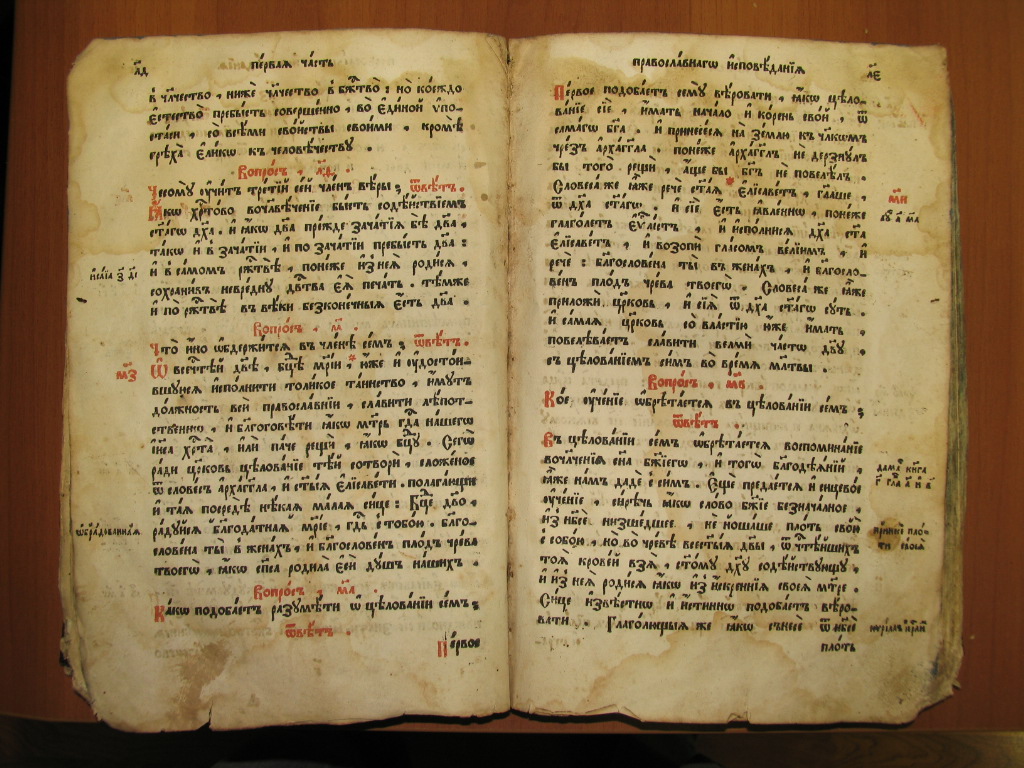 л҃д
пе́рваѧ ча́сть
в члч҃ество , нижѐ члч҃ество в бж҃тво : но ко́еждо
є҆стество̀ пребы́сть соверше́нно , во є҆ди́ной ѵ҆по-
ста́си , со все́ми сво́йствы свои́ми , кромѣ̀
грѣха̀ є҆ли́кѡ къ человѣ́честву .
Вопро́съ , л҃ѳ .
Чесомꙋ̀ ᲂу҆чи́тъ тре́тїй се́й чле́нъ вѣ́ры ; ѿвѣ́тъ .
Ꙗ҆́кѡ хрⷭ҇то́во вочл҃вѣче́нїе бы́сть содѣ́йствїемъ
ст҃а́гѡ дх҃а . и҆ ꙗ҆́кѡ дв҃а пре́жде зача́тїѧ бѣ̀ дв҃а ,
та́кѡ и҆ в зача́тїи , и҆ по зача́тїи пребы́сть дв҃а :
и҆ в са́момъ рж҃твѣ̀ , поне́же и҆з̾ неѧ̀ роди́сѧ ,
сохрани́въ невре́днꙋ дв҃ства є҆ѧ̀ печа́ть . тѣ́мже
и҆ по рж҃твѣ̀ въ вѣ́ки безконе́чныѧ є҆́сть дв҃а .
и҆са́їа
Вопро́съ , м҃ .
Что̀ и҆́но ѡ҆бдержи́тсѧ въ чле́нѣ се́мъ ; ѿвѣ́тъ .
Ѡ҆ всечⷭ҇тѣ́й дв҃ѣ , бц҃ѣ мр҃і́и , * ꙗ҆́же и҆ ᲂу҆досто́и-
вшꙋюсѧ и҆спо́лнити толи́кое та́инство , и҆́мꙋтъ
до́лжность всѝ правосла́внїи , сла́вити лѣ́пот-
ственнѡ , и҆ благоговѣ́ти ꙗ҆́кѡ мт҃рь гдⷭ҇а на́шегѡ
і҆и҃са хрⷭ҇та̀ , и҆лѝ па́че рещѝ , ꙗ҆́кѡ бц҃ꙋ . Сегѡ̀
ра́ди цр҃ковь цѣлова́нїе тѣ́й сотворѝ , сложе́ное
ѿ слове́съ а҆рха́гг҃ла , и҆ ст҃ы́ѧ є҆лїсаве́ти . полага́ющи
и҆ та́ѧ посредѣ̀ нѣ́каѧ ма́лаѧ си́це : Бц҃е дв҃о ,
ра́дꙋйсѧ бл҃года́тнаѧ мр҃і́е , гдⷭ҇ь с тобо́ю . благо-
слове́на ты̀ в жена́хъ , и҆ благослове́нъ пло́дъ чре́ва
твоегѡ̀ , ꙗ҆́кѡ сп҃са родила̀ є҆сѝ дꙋ́шъ на́шихъ .
м҃з
ѡ҆бра́дованнаѧ
Вопро́съ , м҃а .
Ка́кѡ подоба́етъ разꙋмѣ́ти ѡ҆ цѣлова́нїи се́мъ ;
ѿвѣ́тъ .
Пе́рвое
правосла́внагѡ и҆сповѣ́данїѧ
л҃є
Пе́рвое подоба́етъ семꙋ̀ вѣ́ровати , ꙗ҆́кѡ цѣло-
ва́нїе сїѐ , и҆́мать нача́ло и҆ ко́рень сво́й , ѿ
самагѡ бг҃а . и҆ принесе́сѧ на зе́млю къ члк҃ѡмъ
чрезъ а҆рха́гг҃ла . поне́же а҆рха́гг҃лъ не дерзнꙋ́лъ
бы того̀ рещѝ , а҆́ще бы * бг҃ъ не повелѣ́лъ .
Словеса́ же ꙗ҆́же речѐ ст҃а́ѧ є҆лїсаве́тъ , глаше ,
ѿ дх҃а ст҃а́гѡ . и҆ сїѐ є҆́сть ꙗ҆вле́ннѡ , поне́же
глаго́летъ є҆ѵⷢ҇лі́стъ , и҆ и҆спо́лнисѧ дх҃а ст҃а
є҆лїсаве́тъ , и҆ возопѝ гла́сомъ ве́лїимъ , и҆
речѐ : благослове́на ты̀ въ жена́хъ , и҆ благосло-
ве́нъ пло́дъ чре́ва твоегѡ̀ . Словеса́ же ꙗ҆́же
приложѝ цр҃ковь , и҆ сїѧ̑ ѿ дх҃а ст҃а́гѡ сꙋ́ть .
и҆ са́маѧ цр҃ковь со вла́стїю ю҆́же и҆́мать ,
повелѣва́етъ сла́вити ве́лми ча́стѡ дв҃ꙋ .
съ цѣлова́нїемъ си́мъ во вре́мѧ мл҃твы .
м҃и
Вопро́съ , м҃в .
Ко́е ᲂу҆че́нїе ѡ҆брѣта́етсѧ въ цѣлова́нїи се́мъ ;
ѿвѣ́тъ .
Въ цѣлова́нїи се́мъ ѡ҆брѣта́етсѧ воспомина́нїе
вочл҃че́нїѧ сн҃а бж҃їегѡ , и҆ тогѡ̀ благодѣѧ́нїй ,
ꙗ҆́же на́мъ дадѐ с си́мъ . Є҆ще́ предае́тсѧ и҆ сицево́е
ᲂу҆че́нїе , си́рѣчь ꙗ҆́кѡ сло́во бж҃їе безнача́лное ,
из̾ нб҃сѐ низше́дшее , не ноша́ше пло́ть свою̀
с собо́ю , но во чре́вѣ всест҃ы́ѧ дв҃ы , ѿ чтⷭ҇ѣ́йшихъ
тоѧ̀ крове́й взѧ̀ , ст҃о́мꙋ дх҃ꙋ содѣ́йствꙋющꙋ .
и҆ и҆з̾ неѧ̀ роди́сѧ ꙗ҆́кѡ и҆з̾ и҆скреннїѧ своеѧ̀ мт҃ре .
Си́це и҆звѣ́стнѡ и҆ и҆́стиннѡ подоба́етъ вѣ́ро-
вати . Глаго́лющыѧ же ꙗ҆́кѡ снесѐ ѿ нб҃сѐ
пло́ть
дама́ кни́га
принесѐ пло-
ти своѧ̀